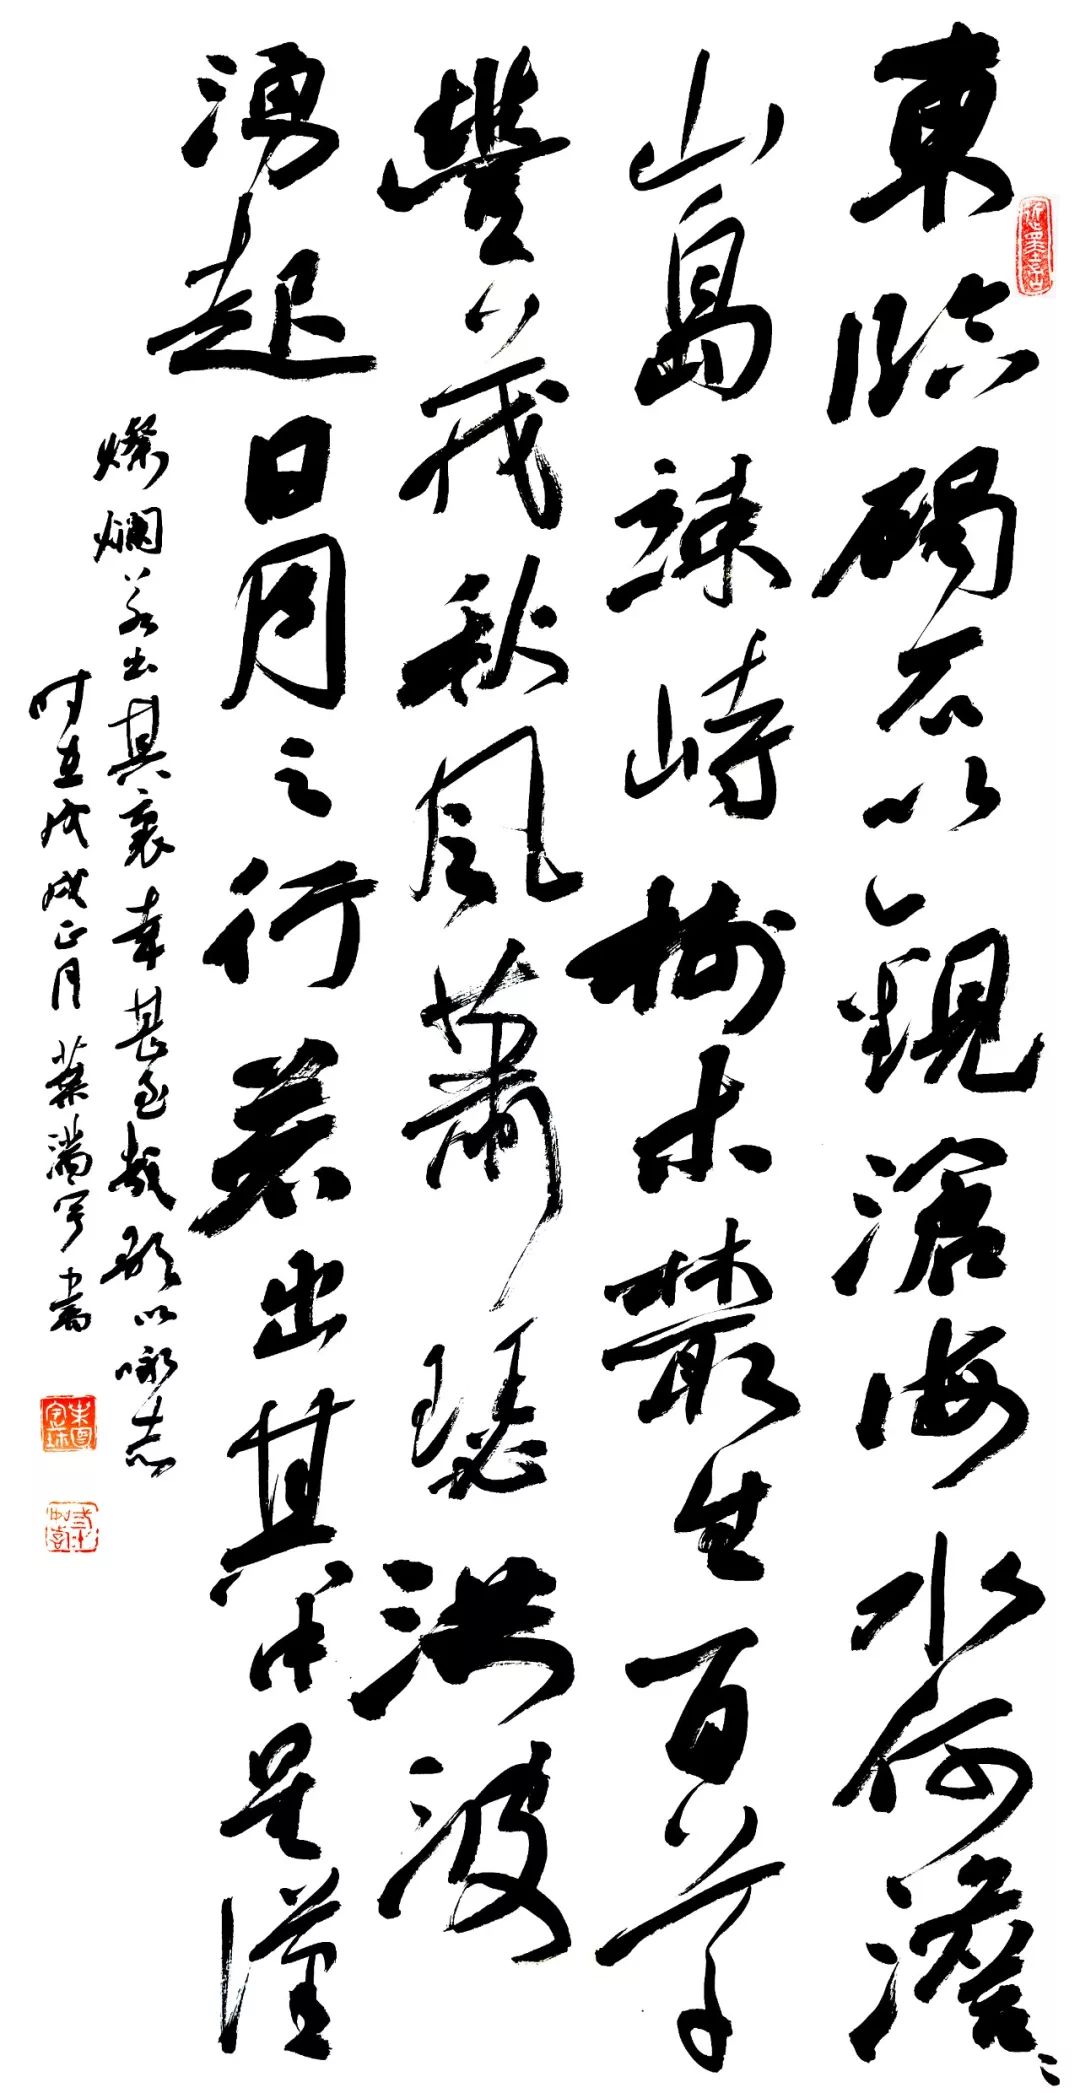 東臨碣石以觀滄海水何澹々
山島竦峙樹木叢生百草
豐茂秋風蕭瑟洪波
湧起日月之行若出其中星漢
燦爛若出其裏幸甚至哉歌以咏志
时在戊戌正月葉書